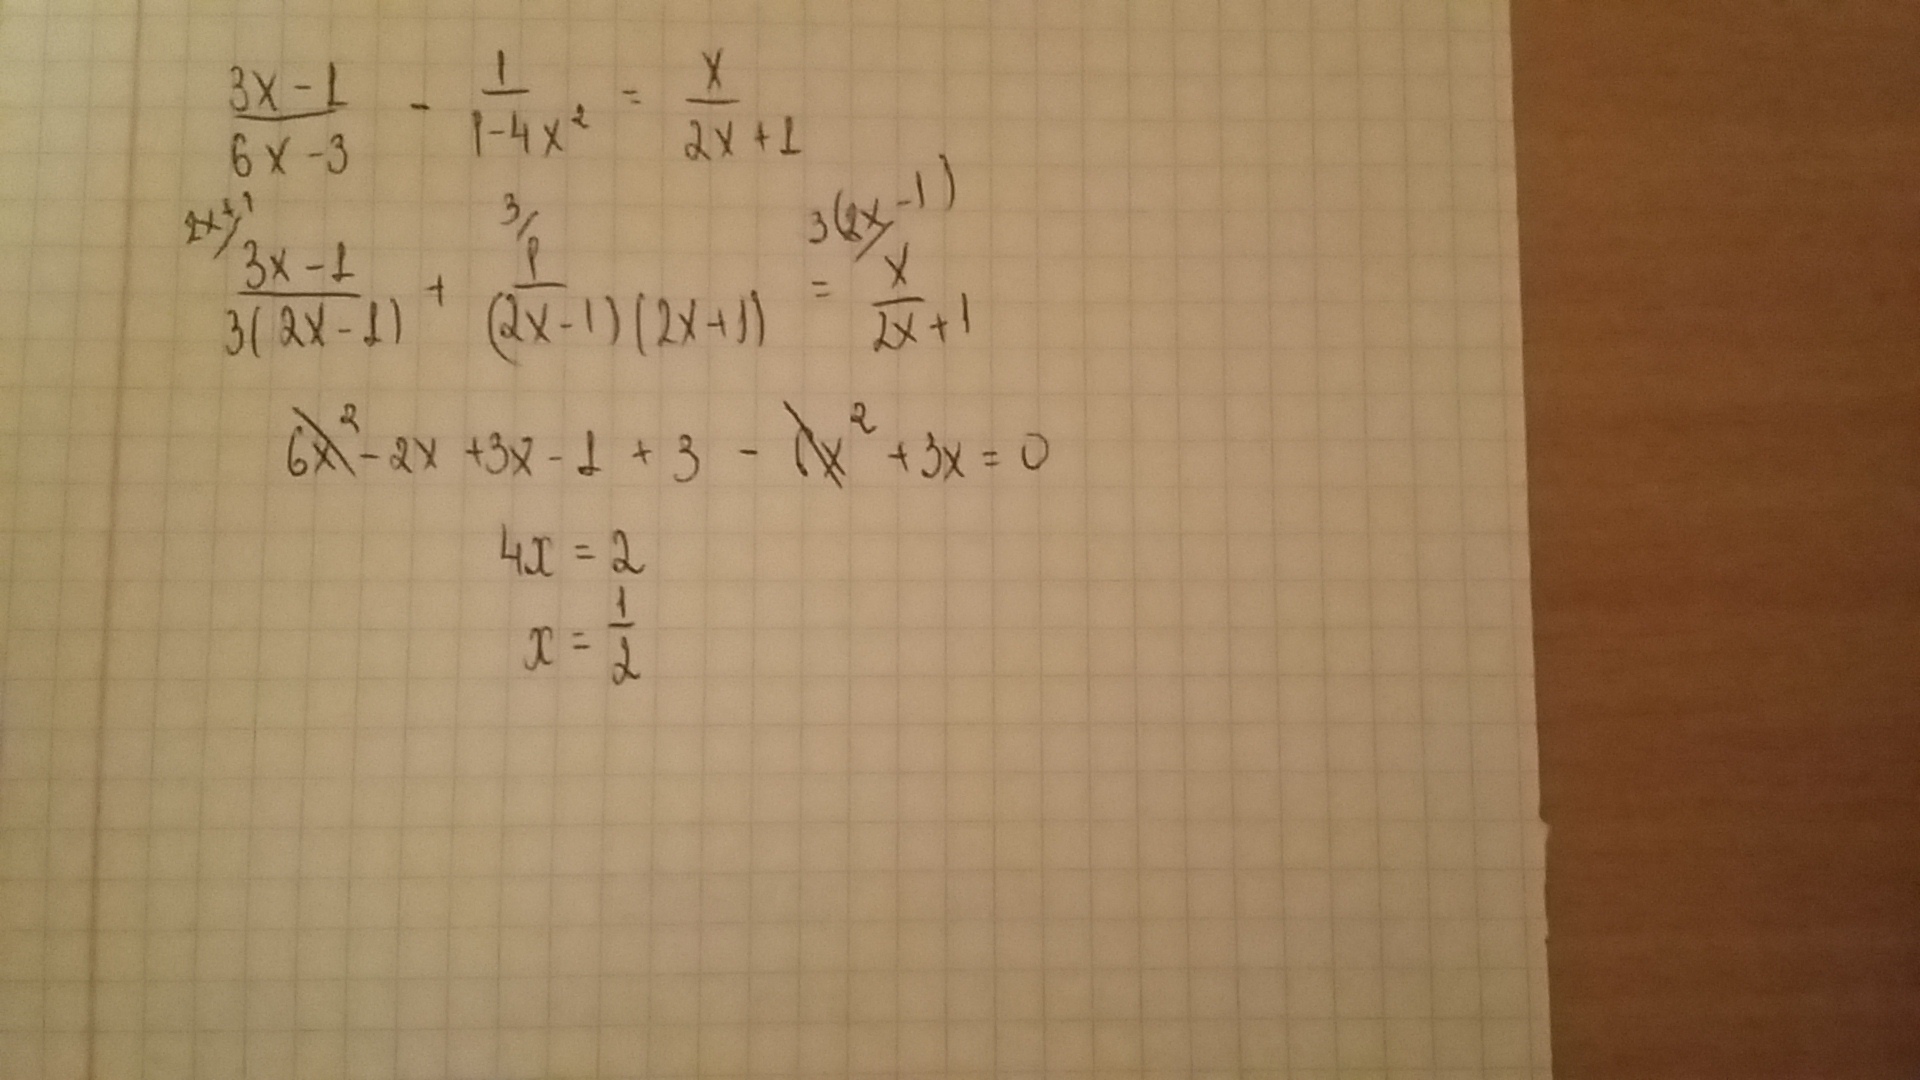 (3x-1)/(6x-3) - 1/(1-4x²) = x/(2x+1)
2x+1/ 3/ 3(2x-1)/
(3x-1)/(3(2x-1)) + 1/((2x-1)(2x+1)) = x/(2x+1)
6x² - 2x + 3x - 1 + 3 - 6x² + 3x = 0
4x = 2
x = 1/2